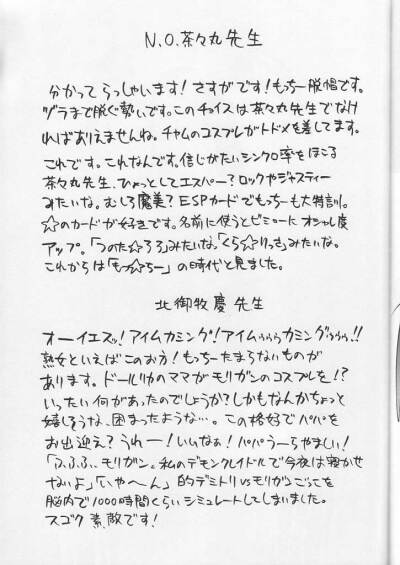 N.O.茶々丸先生
分かってらっしゃいます!さすがです!もっちー脱帽です。
ヅラまで脱ぐ勢いです。このチョイスは茶々丸先生でなけ
ればありえませんね。チャムのコスプレがトドメを差してます。
これです。これなんです。信じがたいシンクロ率をほこる
茶々丸先生、ひょっとしてエスパー?ロックやジャスティー
みたいな。むしろ魔美?ESPカードでもっちーも大特訓。
☆のカードが好きです。名前に使うとビミョーにオシャレ度
アップ。「つのた☆ろろ」みたいな。「くら☆りっさ」みたいな。
これからは「もっ☆ちー」の時代と見ました。
北御牧慶先生
オーイエスッ!アイムカミング!アイムぅぅぅカミングぅぅぅ!!
熟女といえばこのお方!もっちーたまらないものが
あります。ドールリカのママがモリガンのコスプレを!?
いったい何があったのでしょうか?しかもなんかちょっと
嬉しそうな、困まったような…。この格好でパパを
お出迎え?うれー!いいなぁ!パパうーらやましい!
「ふふふ、モリガン。私のデモンクレイドルで今夜は寝かせ
ないよ」「いや〜ん」的デミトリvsモリガンごっこを
脳内で1000時間くらいシミュレートしてしまいました。
スゴク素敵です!